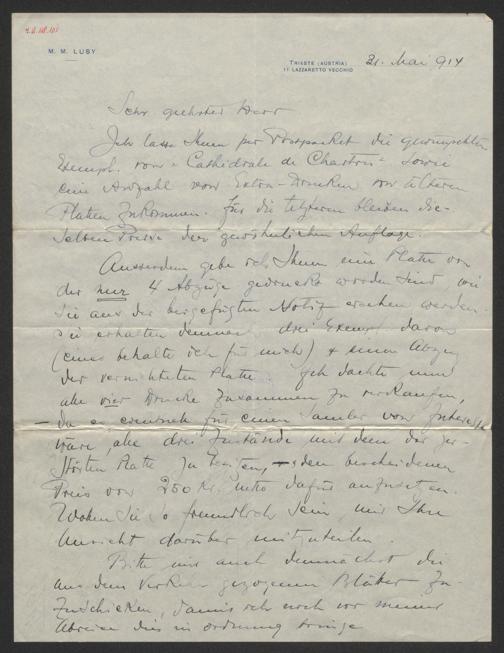 M. M. LUBY
TRIESTE (AUSTRIA)
11 LAZZARETTO VECCHIO
31. Mai 914
Sehr geehrter Herr
Ich lasse Ihnen per Postpacket die gewünschten
Exempl. von "Cathédrale de Chartres" sowie
eine Anzahl von Extra-Drucken von älteren
Platten zukommen. Für die letzteren bleiben die-
selben Preise der gewöhnlichen Auflage.
Ausserdem gebe ich Ihnen eine Platte von
der nur 4 Abzüge gedruckt worden sind wie
Sie aus der beigefügten Notiz ersehen werden.
Sie erhalten demnach drei Exempl davon
(eines behalte ich für mich) + einen Abzug
der vernichteten Platte. Ich dachte nun
alle vier Drucke zusammen zu verkaufen,
– da es eventuell für einen Samler von Interesse
wäre, alle drei Zustände mit dem der zer-
störten Platte zu besitzen, – den bescheidenen
Preis von 250 Kr. netto dafür anzusetzen.
Wollen Sie so freundlich sein mir Ihre
Ansicht darüber mitzuteilen.
Bitte mir auch demnächst die
aus dem Verkehr gezogenen Blätter zu-
zuschicken, damit ich noch vor meiner
Abreise dies in Ordnung bringe